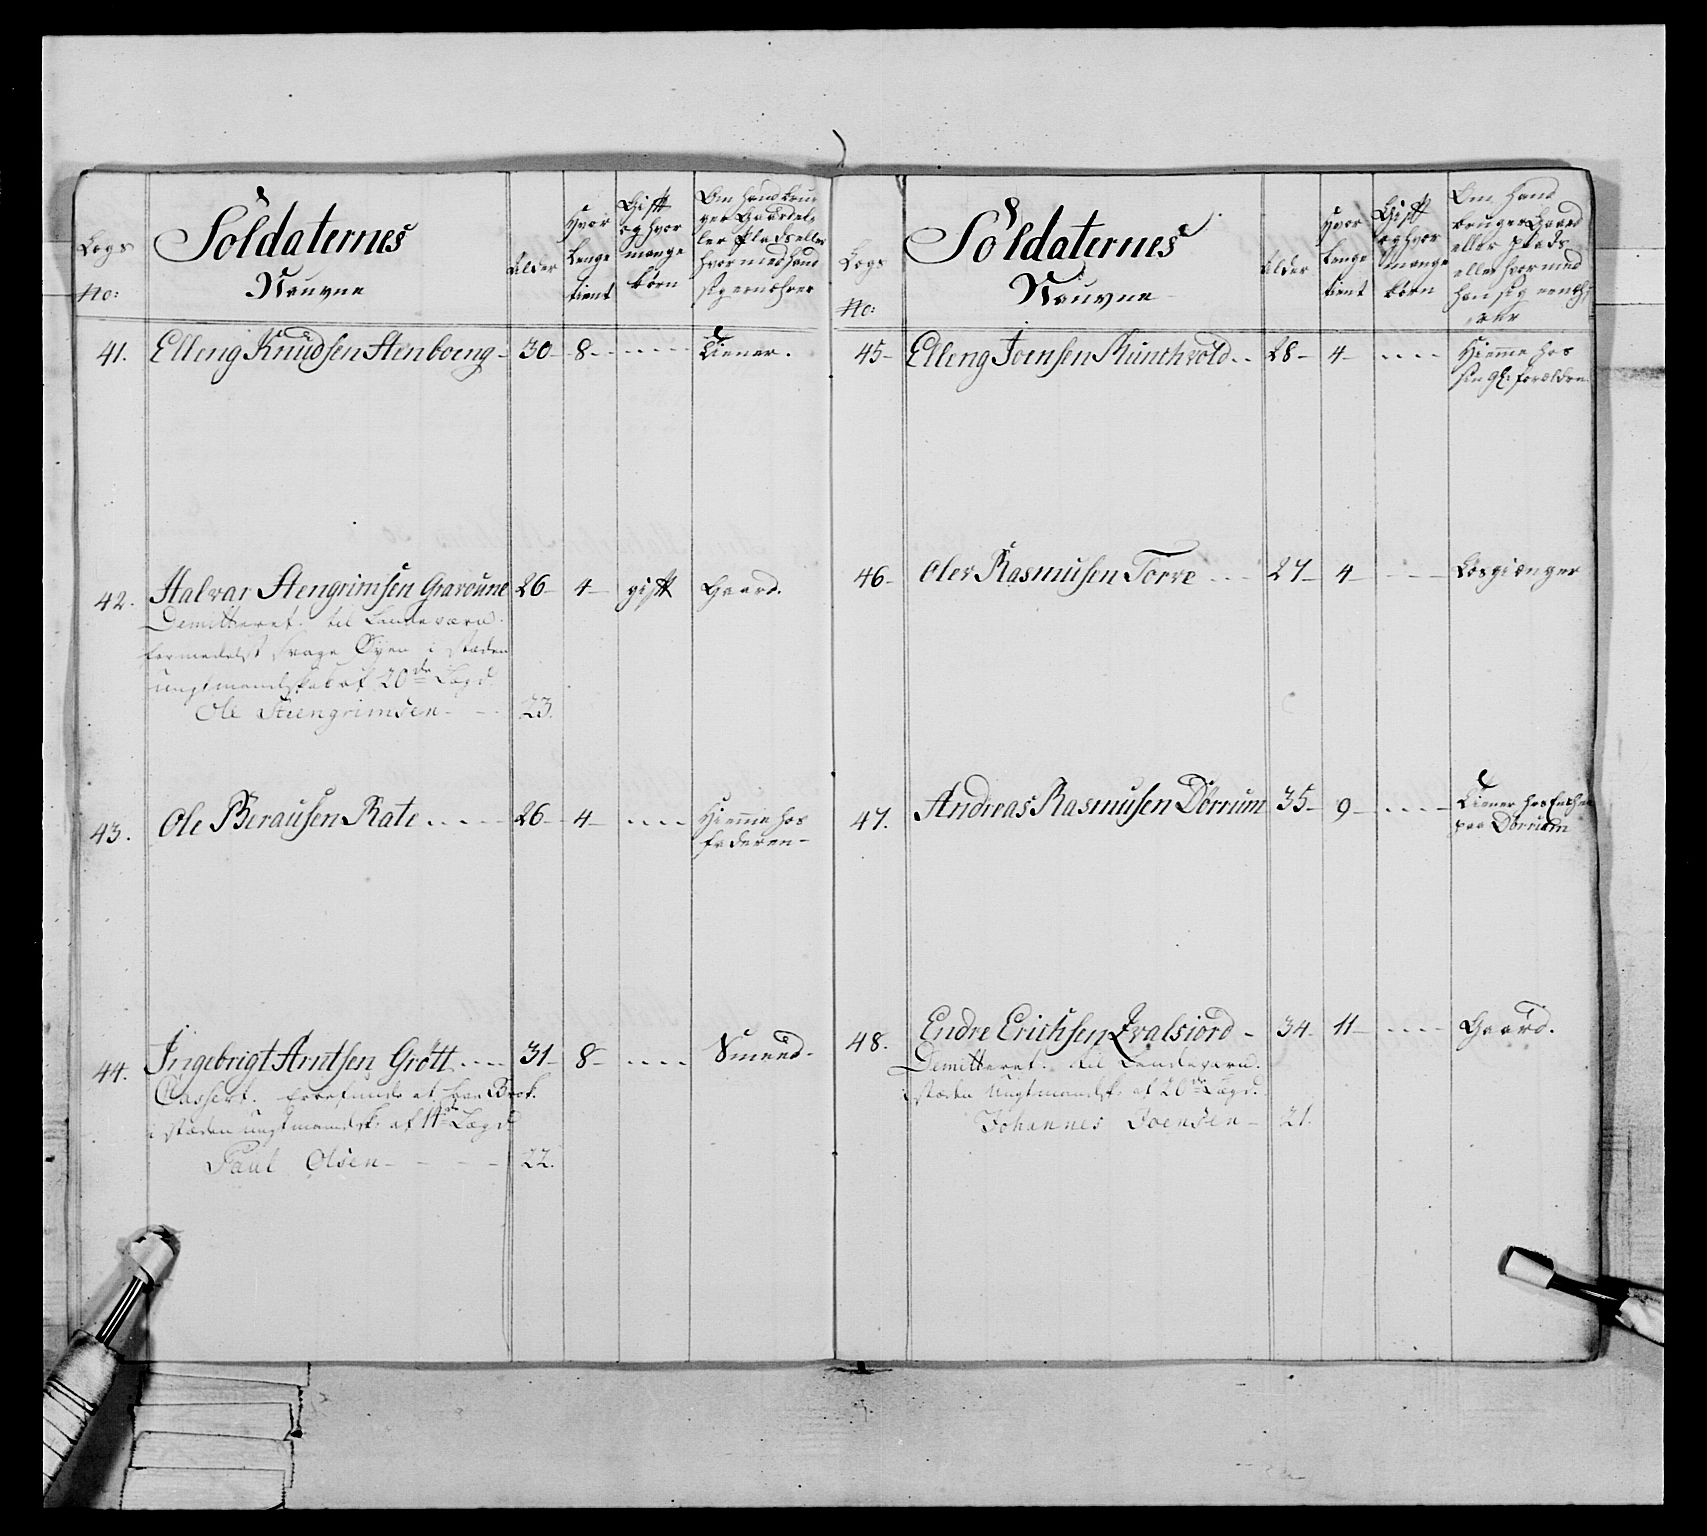 Søldaternes
Navne
Lægs
No:
Alder
Hvor
lenge
tient
Gift
og hvor
mange
børn
Om hand bru-
ger Gaard el-
ler Plads eller
hvormed hand
sig ernæhrer
41. Elleng Knudsen Stenboeng - 30 - 8 - - - - - Tiener.
42. Halvar Stengrimsen Gravoune 26 - 4 - gift Gaard.
Demitteret til Landeværn
formedelst svage Øyen i stæden
ungtmandskab af 20de Lægd
Ole Steengrimsen - - - 23.
43. Ole Berausen Rate . . . . 26 - 4 - - - - - Hiemme hos
faderen -
44. Ingebrigt Arntsen Grøtt . . . . 31 - 8 - - - - - Smeed.
Cassert.
i stæden ungtmandsk. af 14de Lægd
Paul Olsen - - - - - 22.
Søldaternes
Navne
Lægs
No:
Alder
Hvor
lenge
tient
Gift
og hvor
mange
børn
Om hand
bruger Gaard
eller plads
eller hvormed
han sig ernæh-
rer
45 - Elleng Joensen Runthvold . . 28 - 4 - - - - - Hiemme hos
sin gl: forældre
46 - Oler Rasmusen Torve . . . 27 - 4 - - - - Løsgiænger
47. Andreas Rasmusen Dørrum 35 - 9 - - - - - Tiener hos Enchen
paa Dørrum
48. Endre Erichsen Qvalsiord - 34 - 11 - - - - Gaard.
Demitteret til Landeværn.
i stæden Ungtmandsk. af 20de Lægd.
Johannes Joensen - 21.